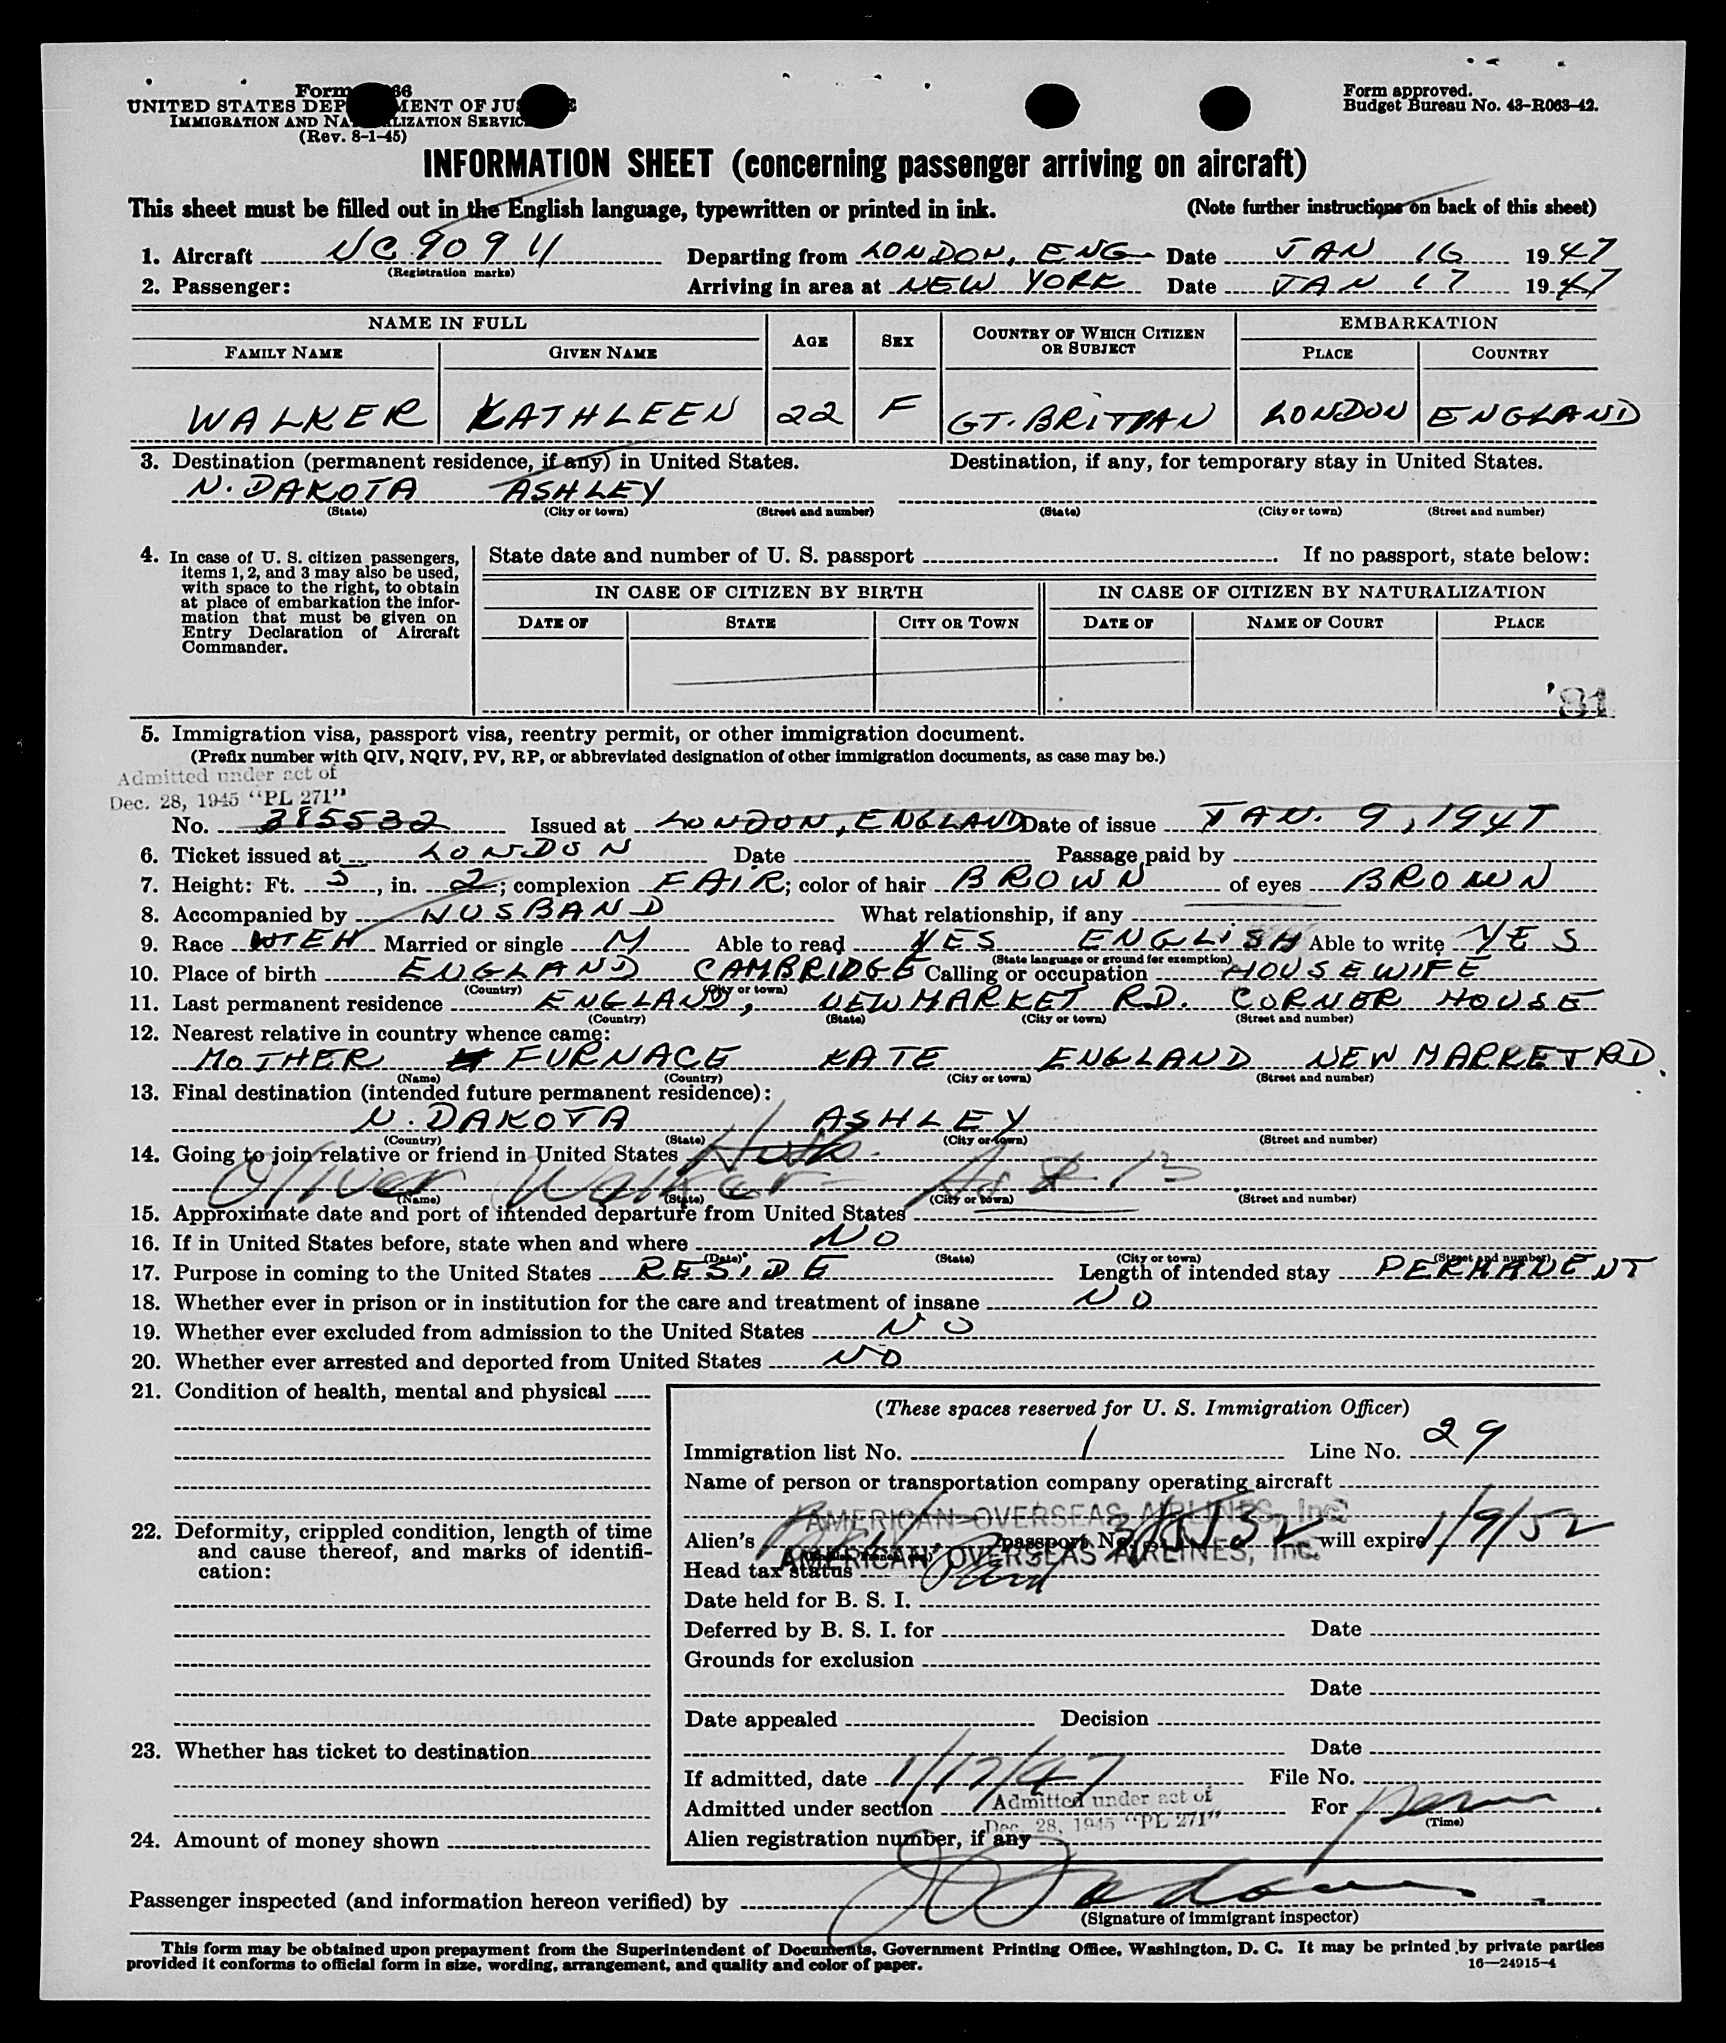 Form 66
UNITED STATES DEP MENT OF JUS E
IMMIGRATION AND NA LIZATION SERVIC
(Rev. 8-1-45)
Form approved.
Budget Bureau No. 43-R063-42.
INFORMATION SHEET (concerning passenger arriving on aircraft)
This sheet must be filled out in the English language, typewritten or printed in ink. (Note further instructions on back of this sheet)
1. Aircraft NC 909 4 Departing from LONDON, ENG Date JAN 16 1947
(Registration marks)
2. Passenger: Arriving in area at NEW YORK Date JAN 17 1947
NAME IN FULL AGE SEX COUNTRY OF WHICH CITIZEN OR SUBJECT EMBARKATION
FAMILY NAME GIVEN NAME PLACE COUNTRY
WALKER KATHLEEN 22 F GT. BRITIAN LONDON ENGLAND
3. Destination (permanent residence, if any) in United States. Destination, if any, for temporary stay in United States.
N. DAKOTA ASHLEY
(State) (City or town) (Street and number) (State) (City or town) (Street and number)
4. In case of U. S. citizen passengers,
items 1, 2, and 3 may also be used,
with space to the right, to obtain
at place of embarkation the infor-
mation that must be given on
Entry Declaration of Aircraft
Commander.
State date and number of U. S. passport . If no passport, state below:
IN CASE OF CITIZEN BY BIRTH IN CASE OF CITIZEN BY NATURALIZATION
DATE OF STATE CITY OR TOWN DATE OF NAME OF COURT PLACE
'81
5. Immigration visa, passport visa, reentry permit, or other immigration document.
(Prefix number with QIV, NQIV, PV, RP, or abbreviated designation of other immigration documents, as case may be.)
Admitted under act of
Dec. 28, 1945 "PL 271"
No. 385532 Issued at LONDON, ENGLAND Date of issue JAN. 9, 1947
6. Ticket issued at LONDON Date Passage paid by
7. Height: Ft. 5, in. 2; complexion FAIR; color of hair BROWN of eyes BROWN
8. Accompanied by HUSBAND What relationship, if any
9. Race WTEH Married or single M Able to read YES ENGLISH Able to write YES
(State language or ground for exemption)
10. Place of birth ENGLAND CAMBRIDGE Calling or occupation HOUSEWIFE
(Country) (City or town)
11. Last permanent residence ENGLAND, NEWMARKET RD. CORNER HOUSE
(Country) (State) (City or town) (Street and number)
12. Nearest relative in country whence came:
MOTHER FURNACE KATE ENGLAND NEWMARKET RD.
(Name) (Country) (City or town) (Street and number)
13. Final destination (intended future permanent residence):
N. DAKOTA ASHLEY
(Country) (State) (City or town) (Street and number)
14. Going to join relative or friend in United States Husb.
Oliver Walker
(Name) (State) (City or town) (Street and number)
15. Approximate date and port of intended departure from United States
16. If in United States before, state when and where NO
(Date) (State) (City or town) (Street and number)
17. Purpose in coming to the United States RESIDE Length of intended stay PERMANENT
18. Whether ever in prison or in institution for the care and treatment of insane NO
19. Whether ever excluded from admission to the United States NO
20. Whether ever arrested and deported from United States NO
21. Condition of health, mental and physical
22. Deformity, crippled condition, length of time
and cause thereof, and marks of identifi-
cation:
23. Whether has ticket to destination
24. Amount of money shown
(These spaces reserved for U. S. Immigration Officer)
Immigration list No. 1 Line No. 29
Name of person or transportation company operating aircraft
AMERICAN OVERSEAS AIRLINES, Inc.
Alien's passport No. will expire 1/9/52
AMERICAN OVERSEAS AIRLINES, Inc.
Head tax status Paid
Date held for B. S. I.
Deferred by B. S. I. for Date
Grounds for exclusion
Date
Date appealed Decision
Date
If admitted, date 1/17/47 File No.
Admitted under section Admitted under act of For perm
Dec. 28, 1945 "PL 271" (Time)
Alien registration number, if any
Passenger inspected (and information hereon verified) by
(Signature of immigrant inspector)
This form may be obtained upon prepayment from the Superintendent of Documents, Government Printing Office, Washington, D. C. It may be printed by private parties
provided it conforms to official form in size, wording, arrangement, and quality and color of paper.
16—24915-4